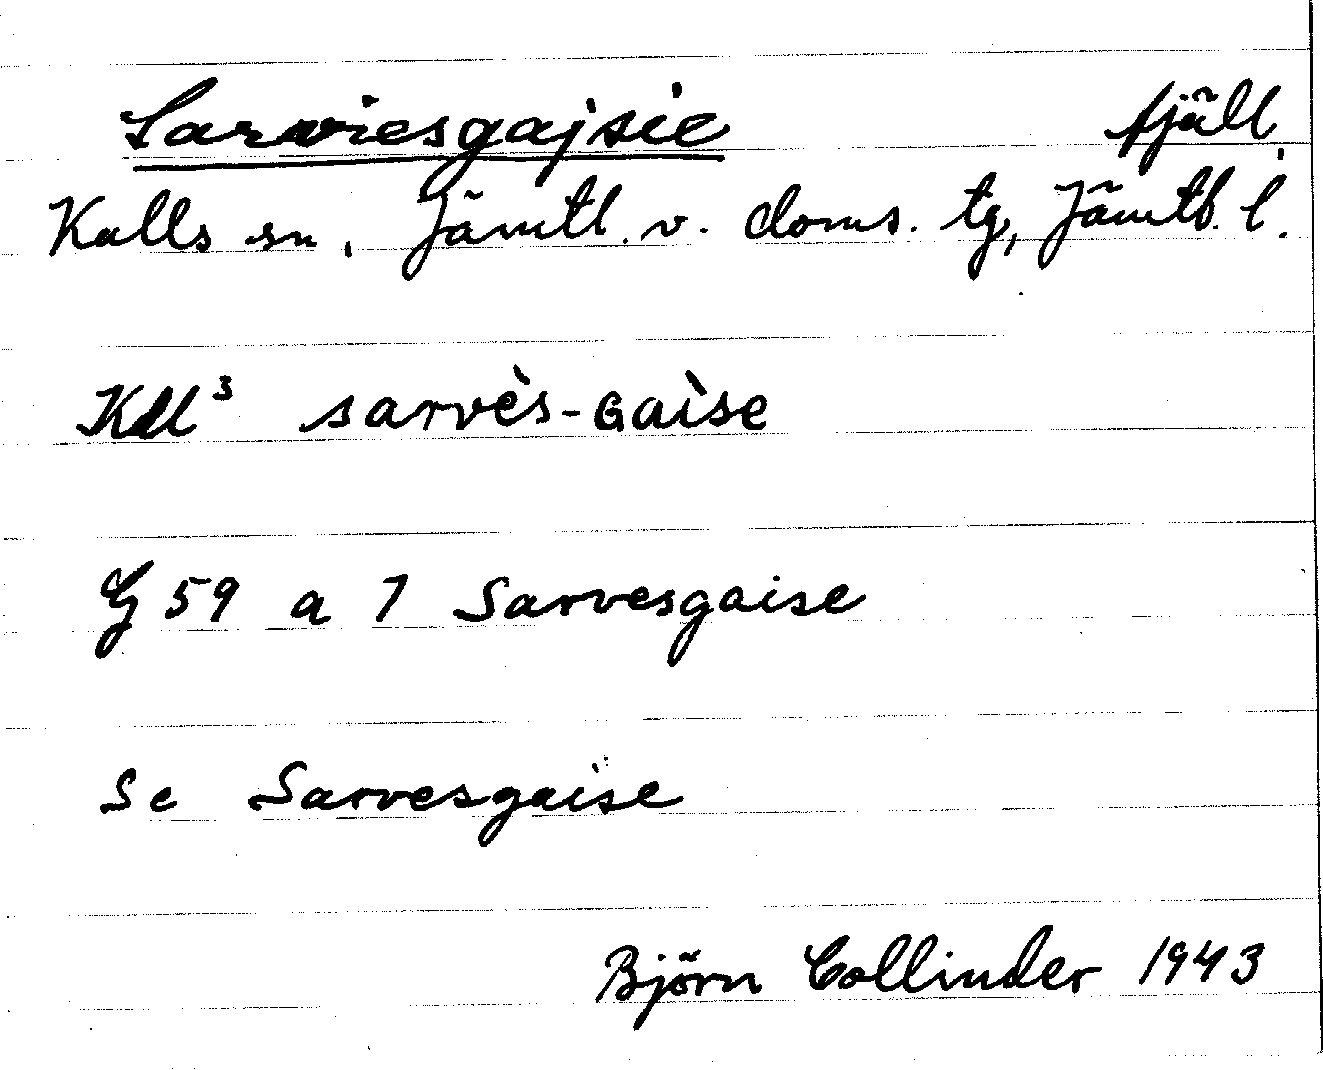 Sarviesgajsie fjäll
Kalls sn, Jämtl. v. doms. tg, Jämtl. l.
Kll³ sarvès-Gaìse
G 59 a 7 Sarvesgaise
Se Sarvesgaise
Björn Collinder 1943